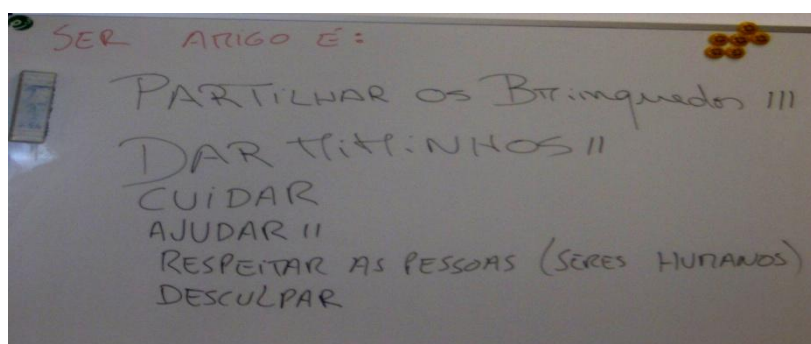 SER AMIGO É:
PARTILHAR OS Brinquedos III
DAR MiMiNHOS II
CUIDAR
AJUDAR II
RESPEITAR AS PESSOAS (SERES HUMANOS)
DESCULPAR